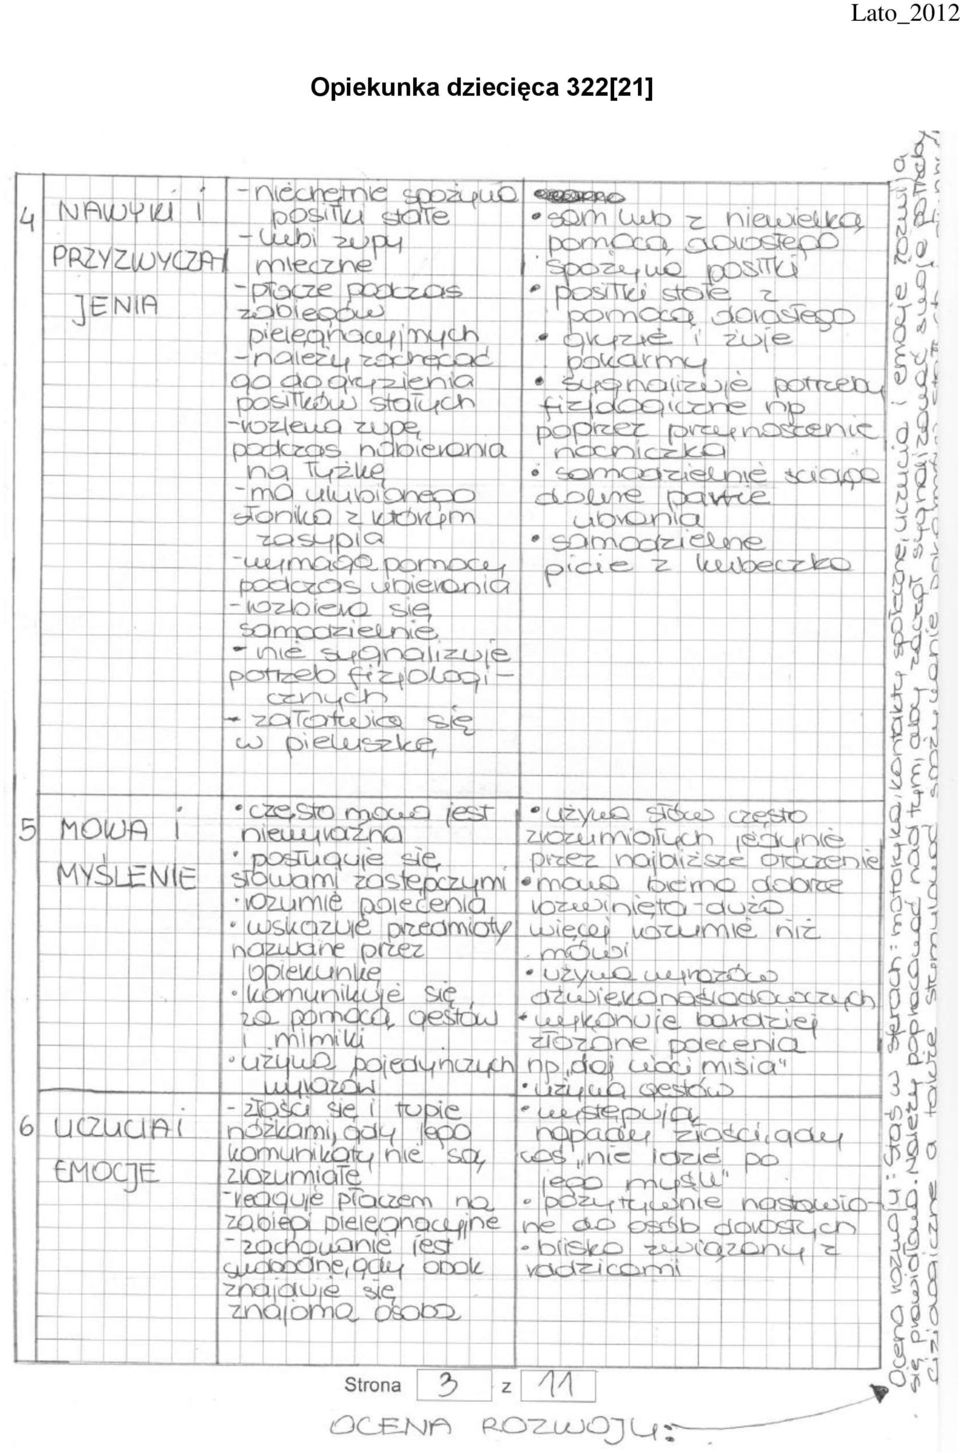 Lato_2012
Opiekunka dziecięca 322[21]
4
NAWYKI I
PRZYZWYCZA
JENIA
- niechętnie spożywa
posiłki stałe
- lubi zupy
mleczne
- płacze podczas
zabiegów
pielęgnacyjnych
- należy zachęcać
go do gryzienia
posiłków stałych
- rozlewa zupę
podczas nabierania
na łyżkę
- ma ulubionego
słonika z którym
zasypia
- wymaga pomocy
podczas ubierania
- rozbiera się
samodzielnie
- nie sygnalizuje
potrzeb fizjologi-
cznych
- załatwia się
w pieluszkę
• sam lub z niewielką
pomocą dorosłego
spożywa posiłki
• posiłki stałe z
pomocą dorosłego
• gryzie i żuje
pokarmy
• sygnalizuje potrzeby
fizjologiczne np
poprzez przynoszenie
nocniczka
• samodzielnie ściąga
dolne partie
ubrania
• samodzielne
picie z kubeczka
5
MOWA I
MYŚLENIE
• często mowa jest
niewyraźna
• posługuje się
słowami zastępczymi
• rozumie polecenia
• wskazuje przedmioty
nazwane przez
opiekunkę
• komunikuje się
za pomocą gestów
i mimiki
• używa pojedynczych
wyrazów
• używa słów często
zrozumiałych jedynie
przez najbliższe otoczenie
• mowa bierna dobrze
rozwinięta - dużo
więcej rozumie niż
mówi
• używa wyrazów
dźwiękonaśladowczych
• wykonuje bardziej
złożone polecenia
np „daj woci misia"
• używa gestów
6
UCZUCIA I
EMOCJE
- złości się i tupie
nóżkami, gdy jego
komunikaty nie są
zrozumiałe
- reaguje płaczem na
zabiegi pielęgnacyjne
- zachowanie jest
swobodne, gdy obok
znajduje się
znajoma osoba
• występują
napady złości, gdy
coś „nie idzie po
jego myśli"
• pozytywnie nastawio-
ne do osób dorosłych
• blisko związany z
rodzicami
Ocena rozwoju: Staś w sferach: motoryka, kontakty społeczne, uczucia i emocje rozwija
się prawidłowo. Należy popracować nad tym, aby zaczął sygnalizować swoje potrzeby
fizjologiczne a także stymulować spożywanie
Strona 3 z 11
OCENA ROZWOJU: